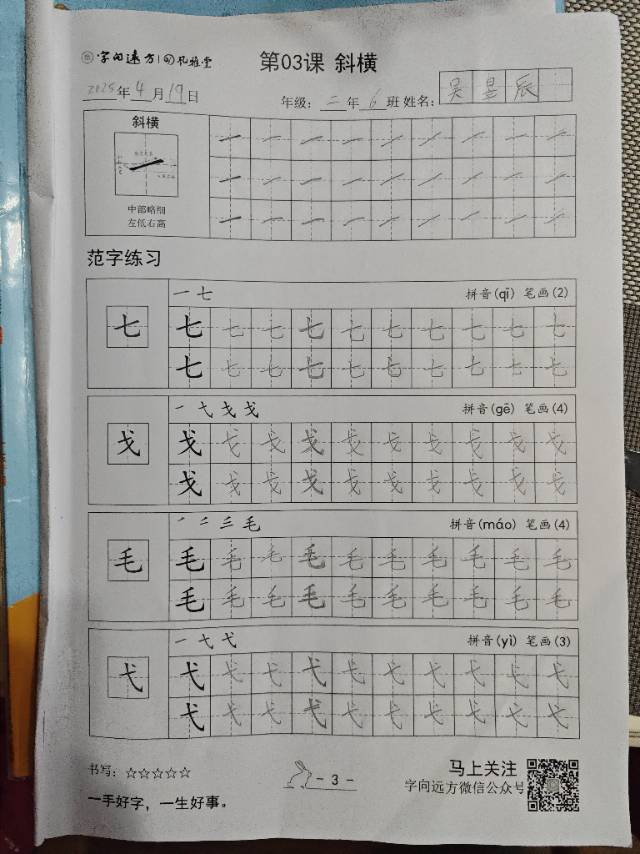 字向远方 习孔雅堂
第03课 斜横
2025年4月19日
年级：二年6班 姓名：吴昱辰
斜横
中部略细
左低右高
范字练习
一 七
拼音(qī) 笔画(2)
七 七 七 七 七 七 七 七 七 七 七
七 七 七 七 七 七 七 七 七 七
一 弋 戈 戈
拼音(gē) 笔画(4)
戈 戈 戈 戈 戈 戈 戈 戈 戈 戈 戈
戈 戈 戈 戈 戈 戈 戈 戈 戈 戈
㇒ 二 三 毛
拼音(máo) 笔画(4)
毛 毛 毛 毛 毛 毛 毛 毛 毛 毛 毛
毛 毛 毛 毛 毛 毛 毛 毛 毛 毛
一 弋 弋
拼音(yì) 笔画(3)
弋 弋 弋 弋 弋 弋 弋 弋 弋 弋 弋
弋 弋 弋 弋 弋 弋 弋 弋 弋 弋
书写：☆☆☆☆☆
- 3 -
马上关注
字向远方微信公众号
一手好字，一生好事。